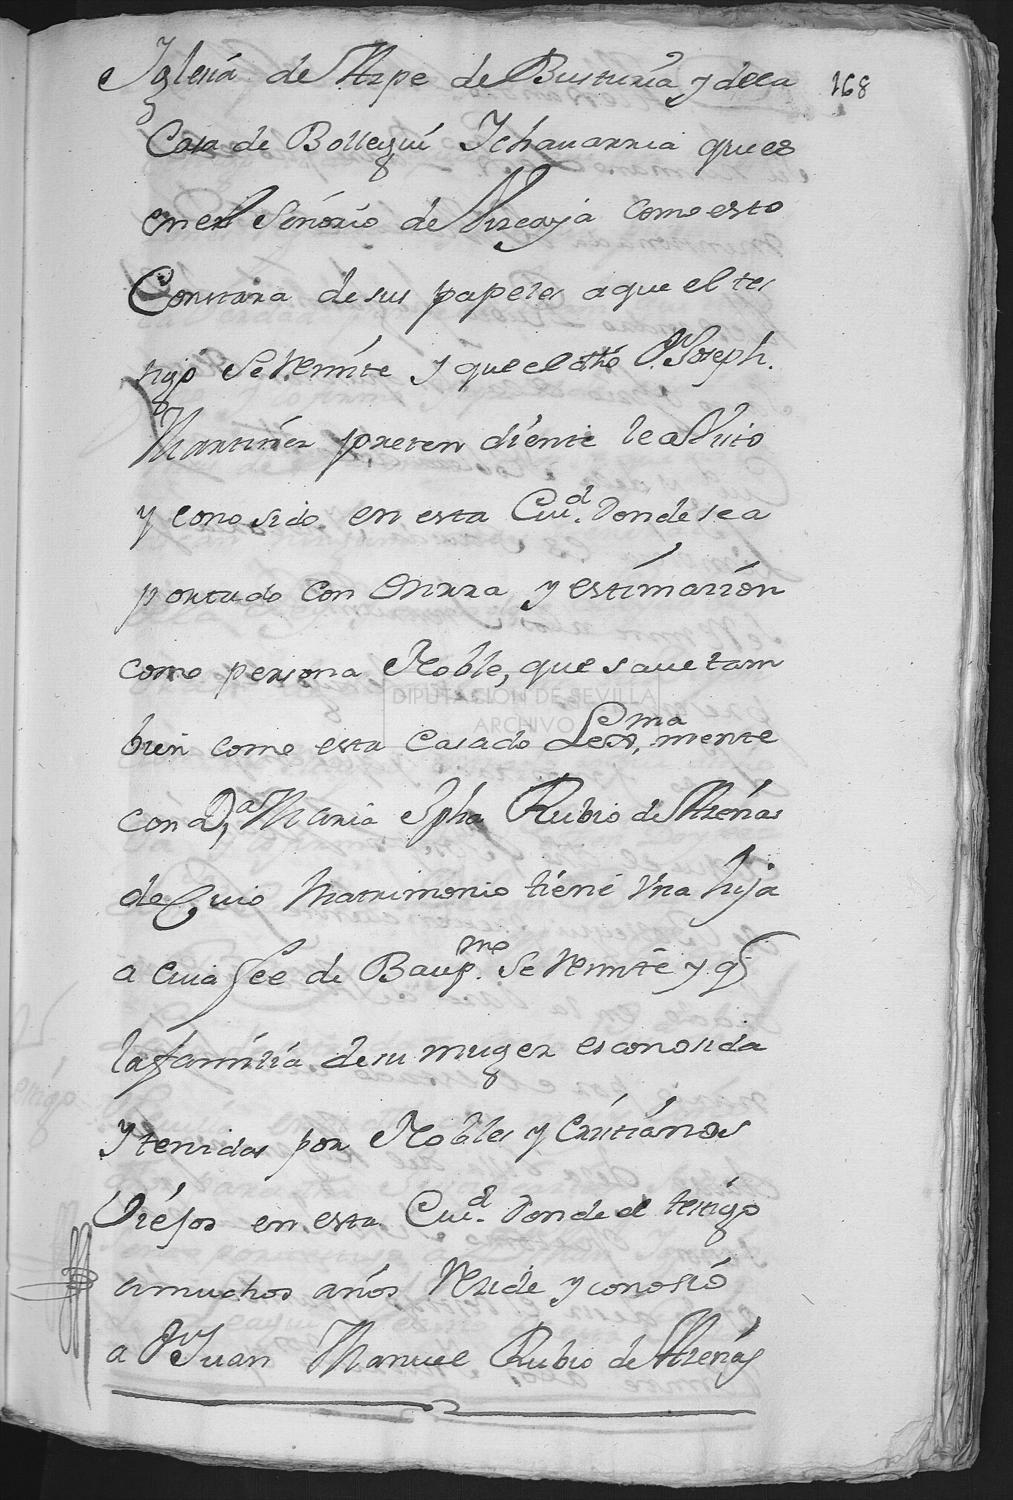 Iglesia de Arpe de Busturia y dela
168
Casa de Bollegui Ichauarria que es
en el Señorio de Vizcaya como esto
Constara de sus papeles aque el tes
tigo se Remite y que el dho Dn Joseph
Martinez preten diente lea Visto
y conosido en esta Ciud. Donde sea
portado con Onrra y estimazion
como persona Noble, que saue tam
bien como esta casado Lexma. mente
con Da. Maria Jpha Rubio de Arenas
de Cuio Matrimonio tiene Vna hija
a cuia fee de Baupmo. se Remite y q
la familia de su muger es conosida
y tenidos por Nobles y Cristianos
Viejos en esta Ciud. Donde el testigo
a muchos años Reside y conosio
a Dn Juan Manuel Rubio de Arenas
DIPUTACION DE SEVILLA
ARCHIVO